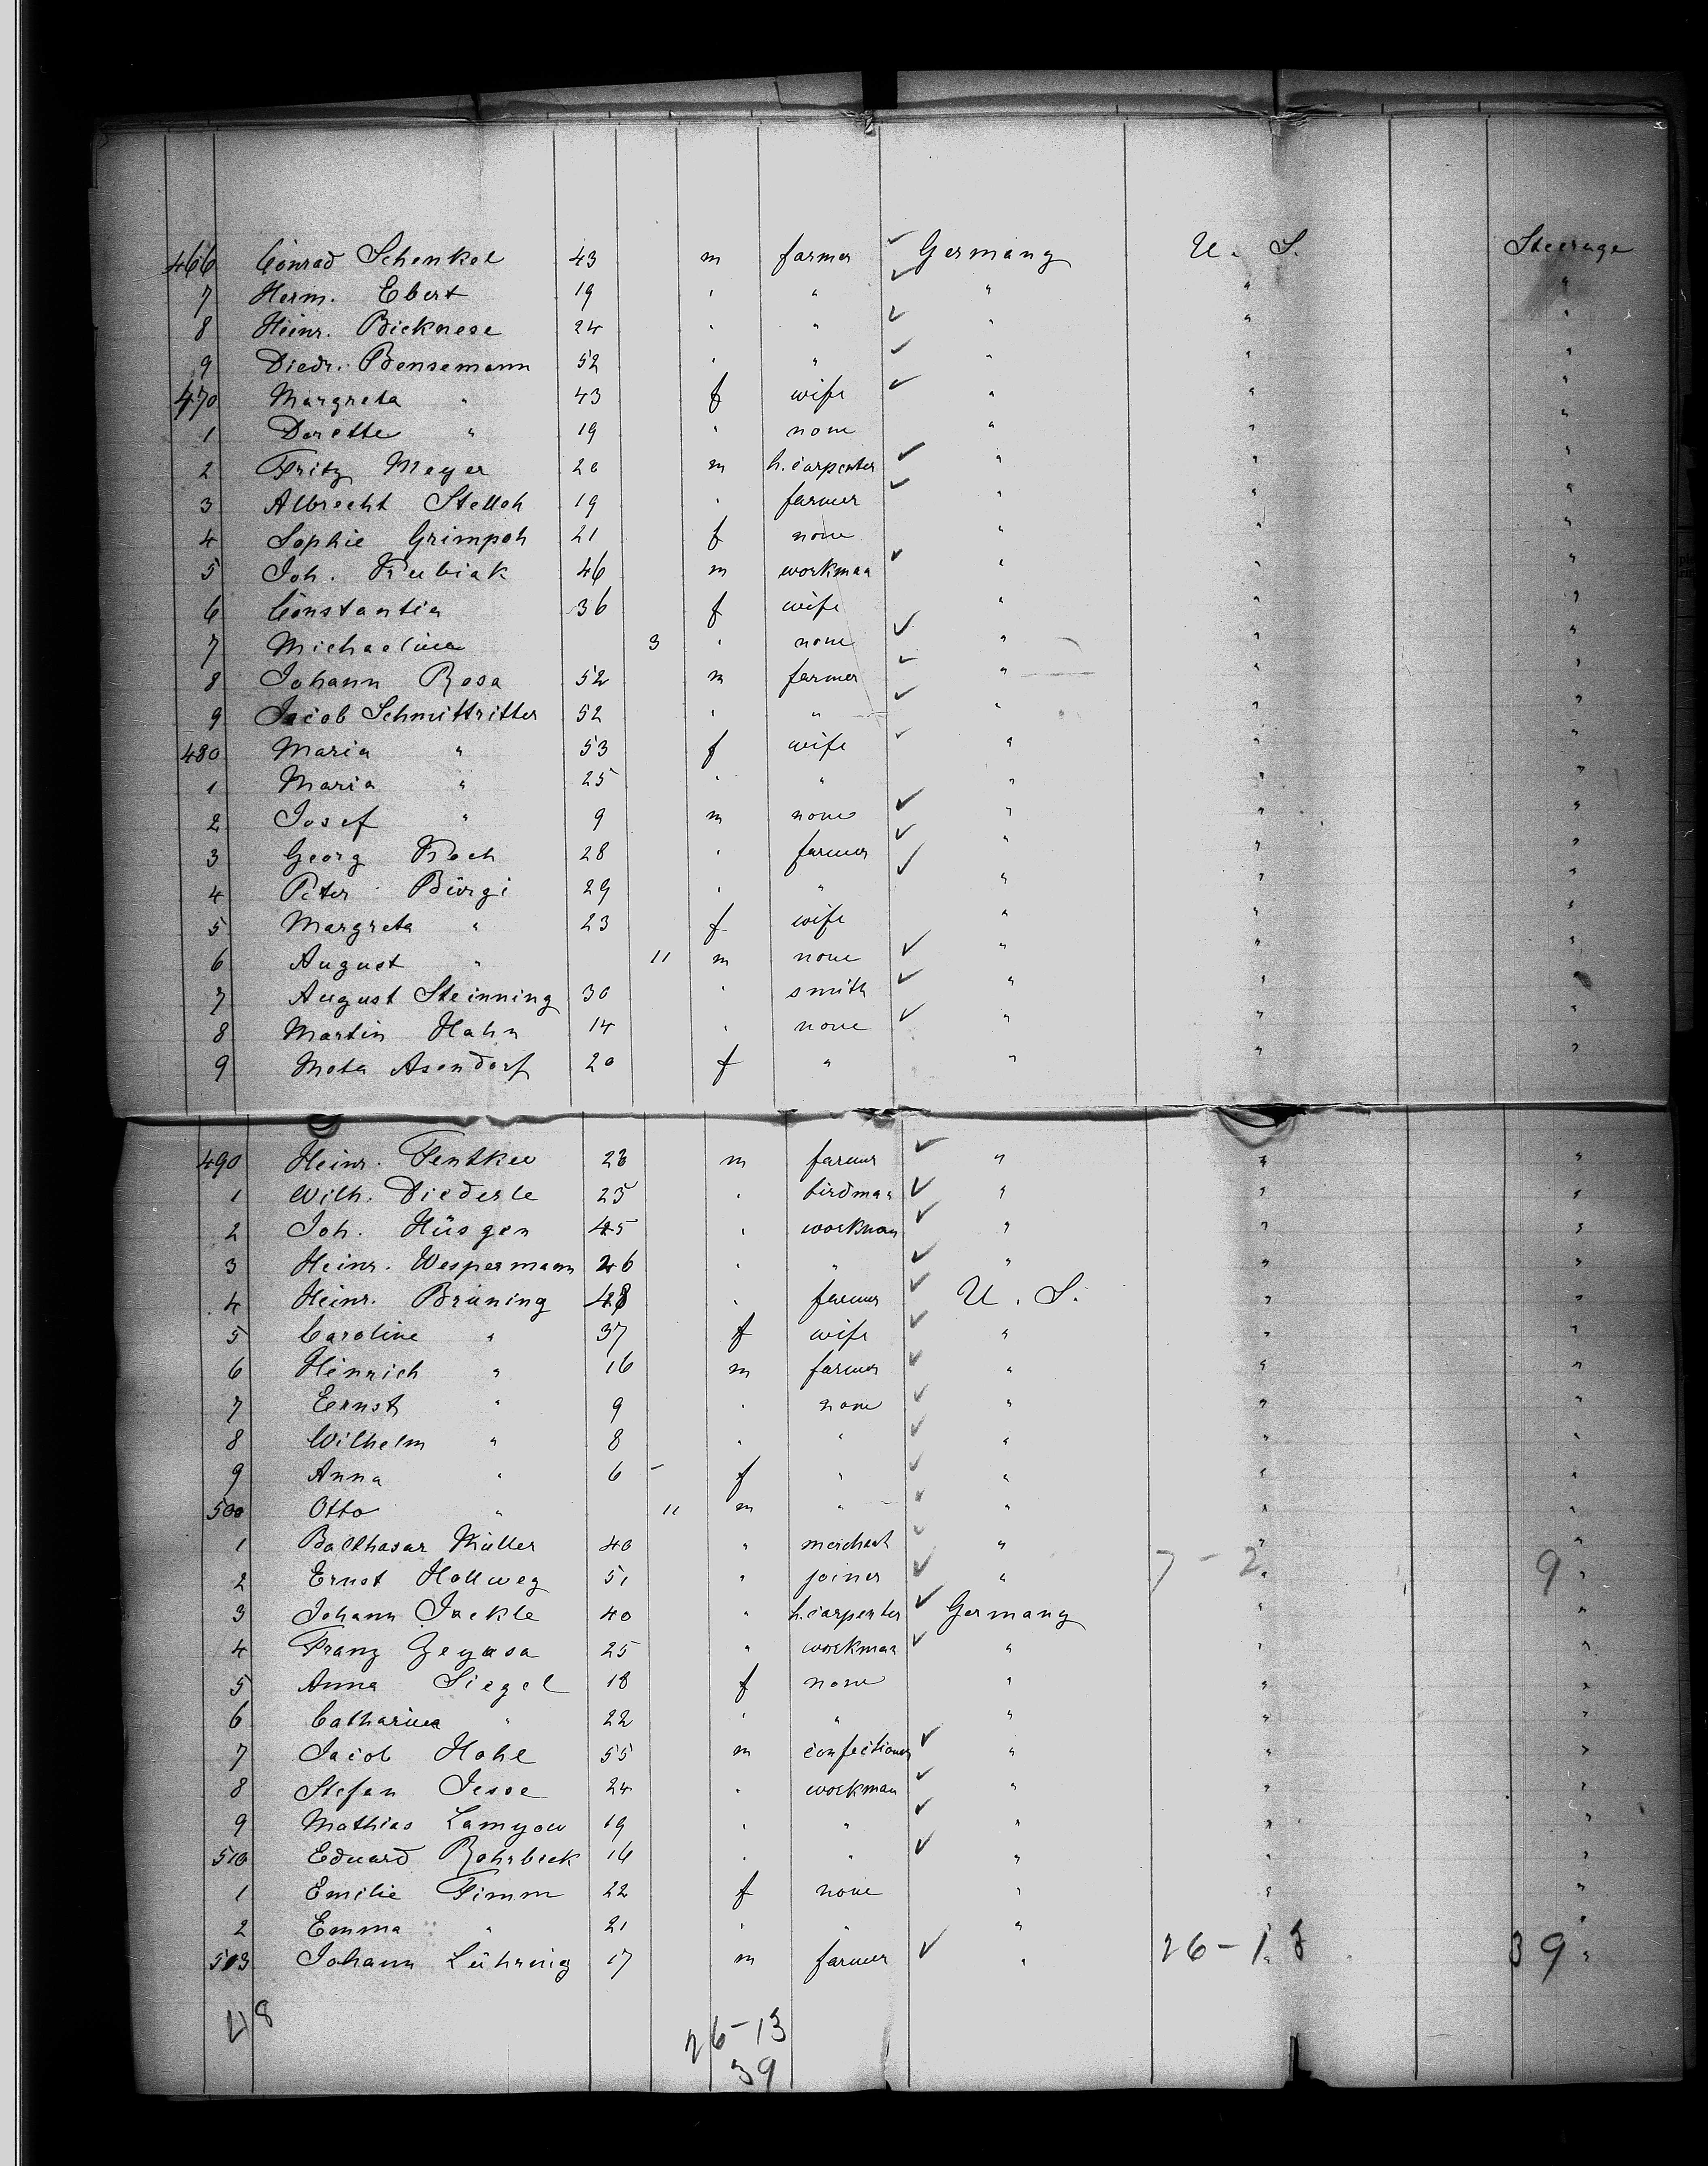 466 Conrad Schenkel 43 m farmer ✓ Germany U. S. Steerage
7 Herm. Ebert 19 " " ✓ " " "
8 Heinr. Bicknese 24 " " ✓ " " "
9 Diedr. Bensemann 52 " " ✓ " " "
470 Margreta " 43 f wife ✓ " " "
1 Dorette " 19 " none " " "
2 Fritz Meyer 20 m h. carpenter ✓ " " "
3 Albrecht Stelloh 19 " farmer ✓ " " "
4 Sophie Grimpoh 21 f none " " "
5 Joh. Kubiak 46 m workman ✓ " " "
6 Constantin 36 f wife " " "
7 Michaelina 3 " none ✓ " " "
8 Johann Rosa 52 m farmer ✓ " " "
9 Jacob Schmittritter 52 " " ✓ " " "
480 Maria " 53 f wife ✓ " " "
1 Maria " 25 " " " " "
2 Josef " 9 m none ✓ " " "
3 Georg Koch 28 " farmer ✓ " " "
4 Peter Bürgi 29 " " ✓ " " "
5 Margreta " 23 f wife " " "
6 August " 11 m none ✓ " " "
7 August Steinning 30 " smith ✓ " " "
8 Martin Hahn 14 " none ✓ " " "
9 Meta Asendorf 20 f " " " "
490 Heinr. 23 m farmer ✓ " " "
1 Wilh. Diederle 25 " birdman ✓ " " "
2 Joh. Hüsgen 45 " workman ✓ " " "
3 Heinr. Wespermann 26 " " ✓ " " "
4 Heinr. Brüning 48 " farmer ✓ U. S. " "
5 Caroline " 37 f wife ✓ " " "
6 Heinrich " 16 m farmer ✓ " " "
7 Ernst " 9 " none ✓ " " "
8 Wilhelm " 8 " " ✓ " " "
9 Anna " 6 - f " ✓ " " "
500 Otto " 11 m " ✓ " " "
1 Balthasar Müller 40 " merchant ✓ " " "
2 Ernst Hollweg 51 " joiner ✓ " 7 - 2 " 9 "
3 Johann Jackle 40 " h. carpenter ✓ Germany " "
4 Franz 25 " workman ✓ " " "
5 Anna Siegel 18 f none " " "
6 Catharina " 22 " " " " "
7 Jacob Hohl 55 m confectioner ✓ " " "
8 Stefan Jesse 24 " workman ✓ " " "
9 Mathias 19 " " ✓ " " "
510 Eduard Rohrbeck 16 " " ✓ " " "
1 Emilie Timm 22 f none " " "
2 Emma " 21 " " " " "
513 Johann Lühring 17 m farmer ✓ " 26-13 " 39 "
48
26-13
39